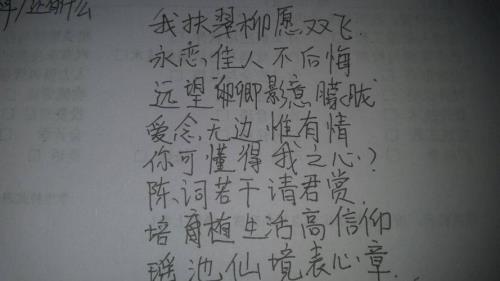 我扶翠柳愿双飞.
永恋佳人不后悔
远望卿卿影意朦胧
爱念无边惟有情
你可懂得我之心?
陈词若干请君赏.
培育植生活高信仰
瑶池仙境表心章.